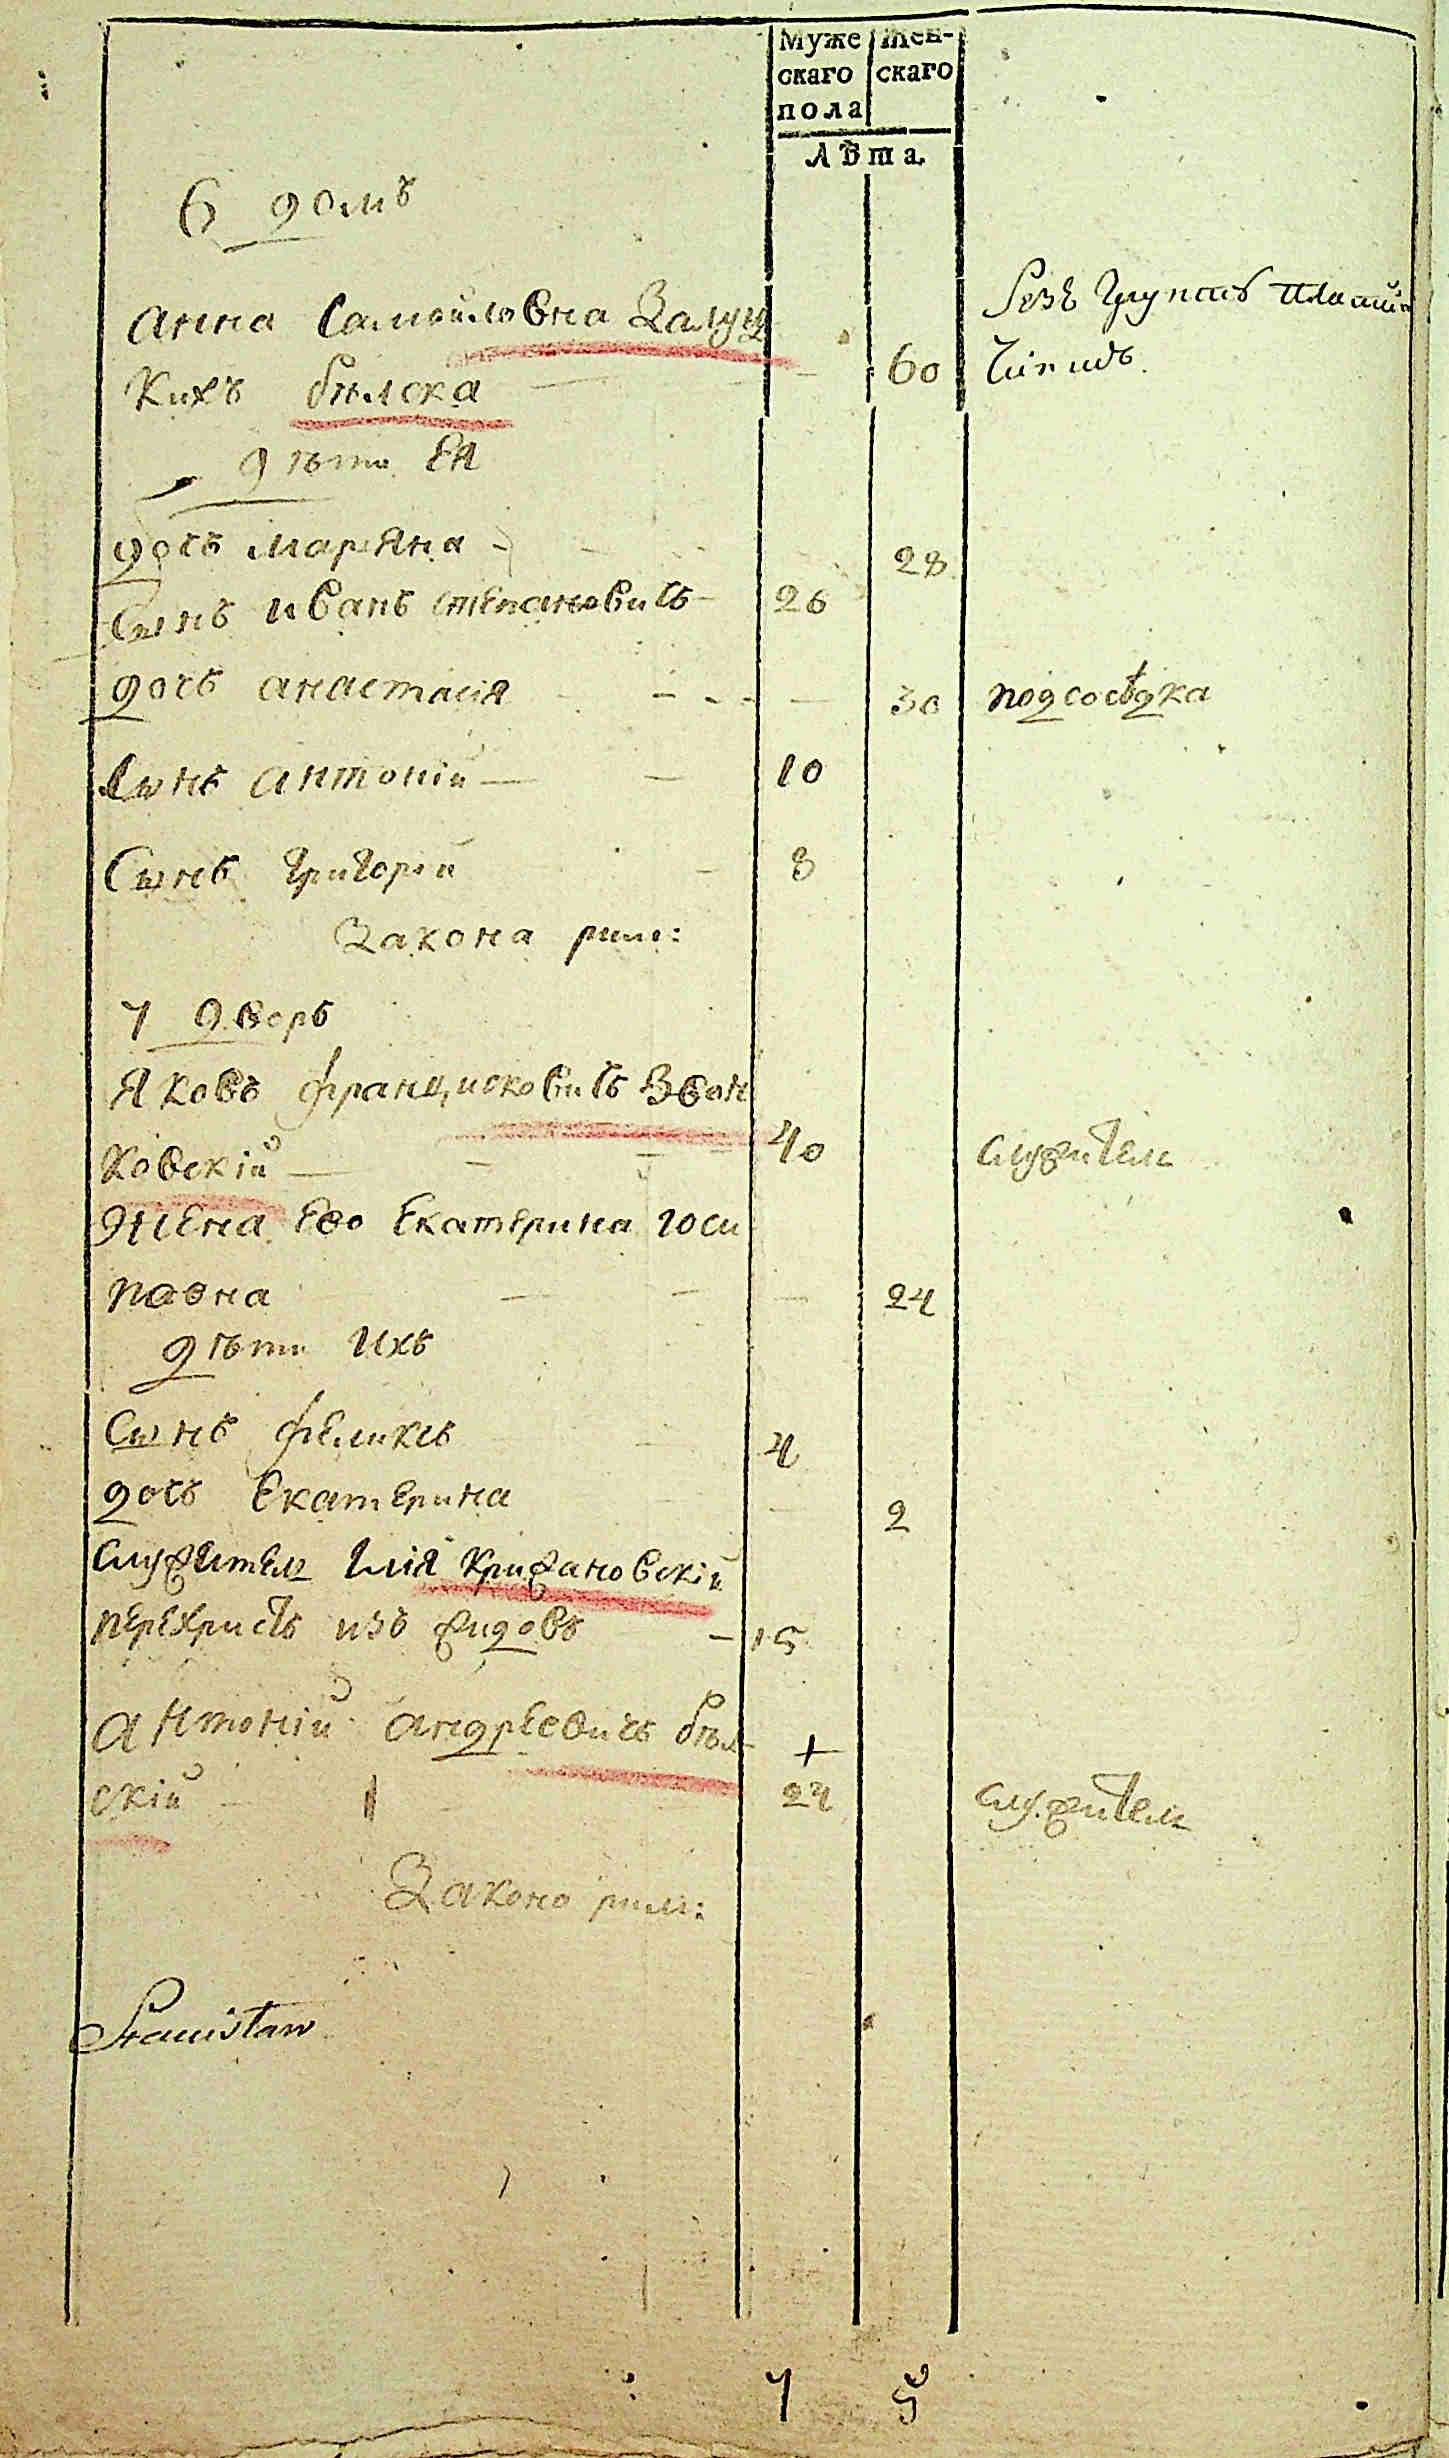 Муже Жен-
скаго скаго
пола
Лѣта.
6 домъ
Анна Самойловна Залуц
кихъ бѣлска 60
дѣти Ея
дочь Марѧна 28
Сынъ иванъ Степановичъ 26
дочь анастасія 30 подсосѣдка
Сынъ антоній 10
Сынъ Григорій 8
Закона рим:
7 дворъ
Яковъ францисковичъ Звон
ковскій 40 служитель
Жена Его Екатерина Юси
повна 24
дѣти Ихъ
Сынъ феликсъ 4
дочь Екатерина 2
служитель Илія Крижановскій
перехристъ изъ жидовъ 15
Антоній андреевичъ бѣл
+
скій 24 служитель
Закона рим:
Stanisław
7 5